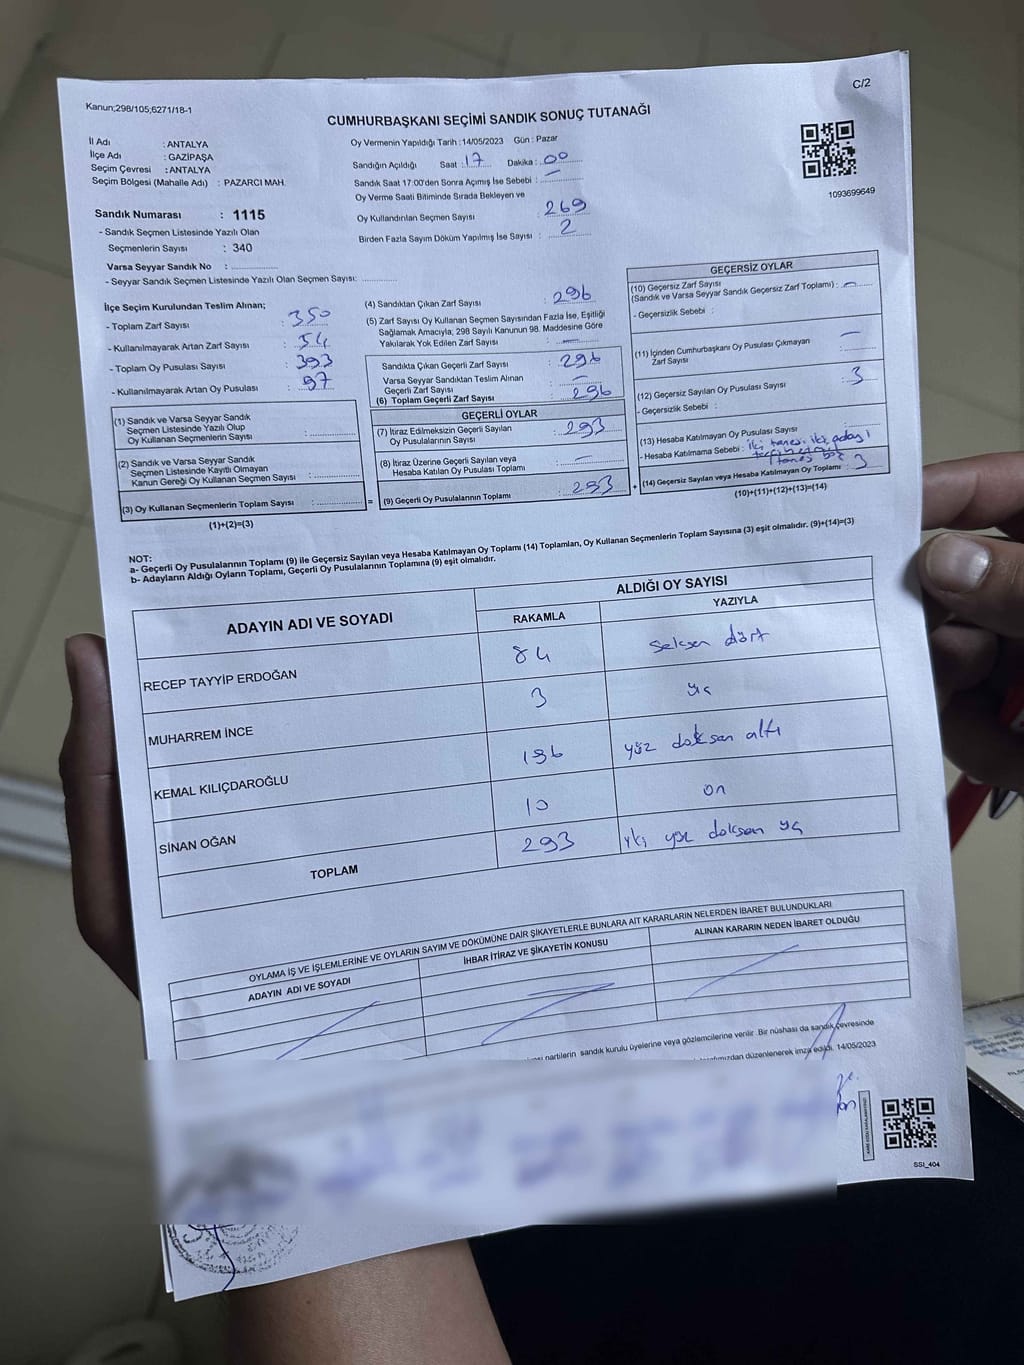 Kanun;298/105;6271/18-1
C/2
CUMHURBAŞKANI SEÇİMİ SANDIK SONUÇ TUTANAĞI
İl Adı : ANTALYA
İlçe Adı : GAZİPAŞA
Seçim Çevresi : ANTALYA
Seçim Bölgesi (Mahalle Adı) : PAZARCI MAH.
Sandık Numarası : 1115
- Sandık Seçmen Listesinde Yazılı Olan
Seçmenlerin Sayısı : 340
Varsa Seyyar Sandık No :
- Seyyar Sandık Seçmen Listesinde Yazılı Olan Seçmen Sayısı:
Oy Vermenin Yapıldığı Tarih : 14/05/2023 Gün : Pazar
Sandığın Açıldığı Saat : 17 Dakika : 00
Sandık Saat 17:00'den Sonra Açımış İse Sebebi : —
Oy Verme Saati Bitiminde Sırada Bekleyen ve
Oy Kullandırılan Seçmen Sayısı 269
Birden Fazla Sayım Döküm Yapılmış İse Sayısı : 2
1093699649
İlçe Seçim Kurulundan Teslim Alınan;
- Toplam Zarf Sayısı : 350
- Kullanılmayarak Artan Zarf Sayısı : 54
- Toplam Oy Pusulası Sayısı : 393
- Kullanılmayarak Artan Oy Pusulası : 97
(1) Sandık ve Varsa Seyyar Sandık
Seçmen Listesinde Yazılı Olup
Oy Kullanan Seçmenlerin Sayısı :
(2) Sandık ve Varsa Seyyar Sandık
Seçmen Listesinde Kayıtlı Olmayan
Kanun Gereği Oy Kullanan Seçmen Sayısı :
(3) Oy Kullanan Seçmenlerin Toplam Sayısı :
(1)+(2)=(3)
(4) Sandıktan Çıkan Zarf Sayısı : 296
(5) Zarf Sayısı Oy Kullanan Seçmen Sayısından Fazla İse, Eşitliği
Sağlamak Amacıyla, 298 Sayılı Kanunun 98. Maddesine Göre
Yakılarak Yok Edilen Zarf Sayısı : —
Sandıkta Çıkan Geçerli Zarf Sayısı : 296
Varsa Seyyar Sandıktan Teslim Alınan
Geçerli Zarf Sayısı : —
(6) Toplam Geçerli Zarf Sayısı : 296
GEÇERLİ OYLAR
(7) İtiraz Edilmeksizin Geçerli Sayılan
Oy Pusulalarının Sayısı : 293
(8) İtiraz Üzerine Geçerli Sayılan veya
Hesaba Katılan Oy Pusulası Toplamı : —
= (9) Geçerli Oy Pusulalarının Toplamı : 293
GEÇERSİZ OYLAR
(10) Geçersiz Zarf Sayısı
(Sandık ve Varsa Seyyar Sandık Geçersiz Zarf Toplamı) : —
- Geçersizlik Sebebi :
(11) İçinden Cumhurbaşkanı Oy Pusulası Çıkmayan
Zarf Sayısı : —
(12) Geçersiz Sayılan Oy Pusulası Sayısı : 3
- Geçersizlik Sebebi :
(13) Hesaba Katılmayan Oy Pusulası Sayısı :
- Hesaba Katmama Sebebi : iki tanesi iki adayı
+ (14) Geçersiz Sayılan veya Hesaba Katılmayan Oy Toplamı : 3
(10)+(11)+(12)+(13)=(14)
NOT:
a- Geçerli Oy Pusulalarının Toplamı (9) ile Geçersiz Sayılan veya Hesaba Katılmayan Oy Toplamı (14) Toplamları, Oy Kullanan Seçmenlerin Toplam Sayısına (3) eşit olmalıdır. (9)+(14)=(3)
b- Adayların Aldığı Oyların Toplamı, Geçerli Oy Pusulalarının Toplamına (9) eşit olmalıdır.
ADAYIN ADI VE SOYADI ALDIĞI OY SAYISI
RAKAMLA YAZIYLA
RECEP TAYYİP ERDOĞAN 84 seksen dört
MUHARREM İNCE 3 üç
KEMAL KILIÇDAROĞLU 196 yüz doksan altı
SİNAN OĞAN 10 on
TOPLAM 293 iki yüz doksan üç
OYLAMA İŞ VE İŞLEMLERİNE VE OYLARIN SAYIM VE DÖKÜMÜNE DAİR ŞİKAYETLERLE BUNLARA AİT KARARLARIN NELERDEN İBARET BULUNDUKLARI
ADAYIN ADI VE SOYADI İHBAR İTİRAZ VE ŞİKAYETİN KONUSU ALINAN KARARIN NEDEN İBARET OLDUĞU
partilerin sandık kurulu üyelerine veya gözlemcilerine verilir. Bir nüshası da sandık çevresinde
düzenlenerek imza edildi. 14/05/2023
SSI_404